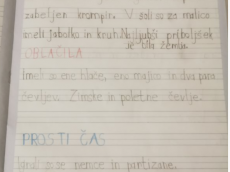 zabeljen krompir. V šoli so za malico
imeli jabolko in kruh. Najljubši priboljšek
je bila žemlja.
OBLAČILA
Imel so ene hlače, eno majico in dva para
čevljev. Zimske in poletne čevlje.
PROSTI ČAS
Igrali so se nemce in partizane.